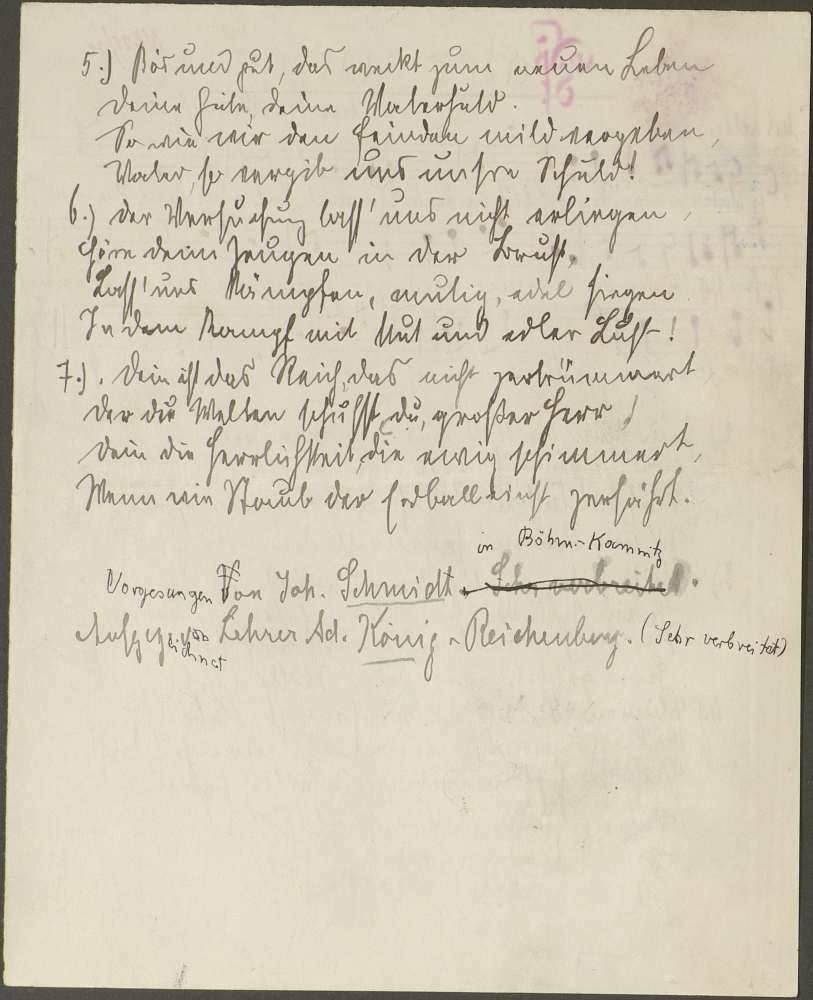 5.) Bös und gut, das weckt zum neuen Leben
Deine Güte, deine Vaterhuld.
So wie wir den Feinden mild vergeben,
Vater, so vergib uns unsre Schuld!
6.) Der Versuchung lass' uns nicht erliegen,
Höre dein Zeugen in der Brust,
Lass' uns kämpfen, mutig, edel siegen
In dem Kampf mit Mut und edler Lust!
7.). Dein ist das Reich, das nicht zertrümmert
Der die Welten schufst, du, großer Herr!
Dein die Herrlichkeit, die ewig schimmert,
Wenn wie Staub der Erdball einst zerfährt.
in Böhm.-Kamnitz
Vorgesungen Von Joh. Schmidt. Sehr verbreitet.
Aufgezeichnet von Lehrer Ad. König - Reichenberg. (Sehr verbreitet)